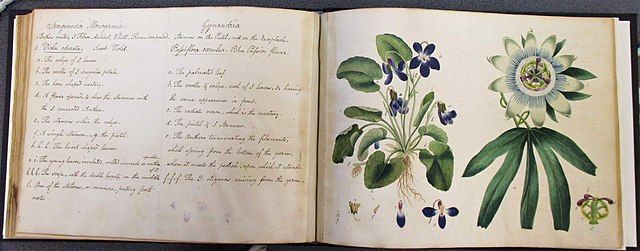 Syngenesia Monogamia
Anthers united, 5 Filam.
1. Viola odorata, Sweet Violet.
a. The calyx of 5 leaves
b. The corolla of 5 irregular petals.
c. The horn shaped nectary.
d. A flower opened to shew the stamens with
the 5 connected Anthers.
e. The stamens within the calyx.
f. A single stamen. g. the pistil.
h. h. h. The heart shaped leaves.
i. i. The young leaves, involuted, rolled inwards on either
k. k. k. The scape, with the double bracts in the middle.
l. One of the stolones, or runners, putting forth
roots.
Gynandria
Stamens on the Pistil, not on the Receptacle.
Passiflora cærulea. Blue Passion flower.
a. The palmated leaf.
b. The corolla & calyx, each of 5 leaves, & having
the same appearance in front.
c. The radiate crown, which is the nectary.
d. The pistil & 5 Stamens.
e. The Anthers terminating the filaments,
which spring from the bottom of the germ,
where it meets the pedicle, upon which it stands.
f. f. f. The 3 stigmas arising from the germ.